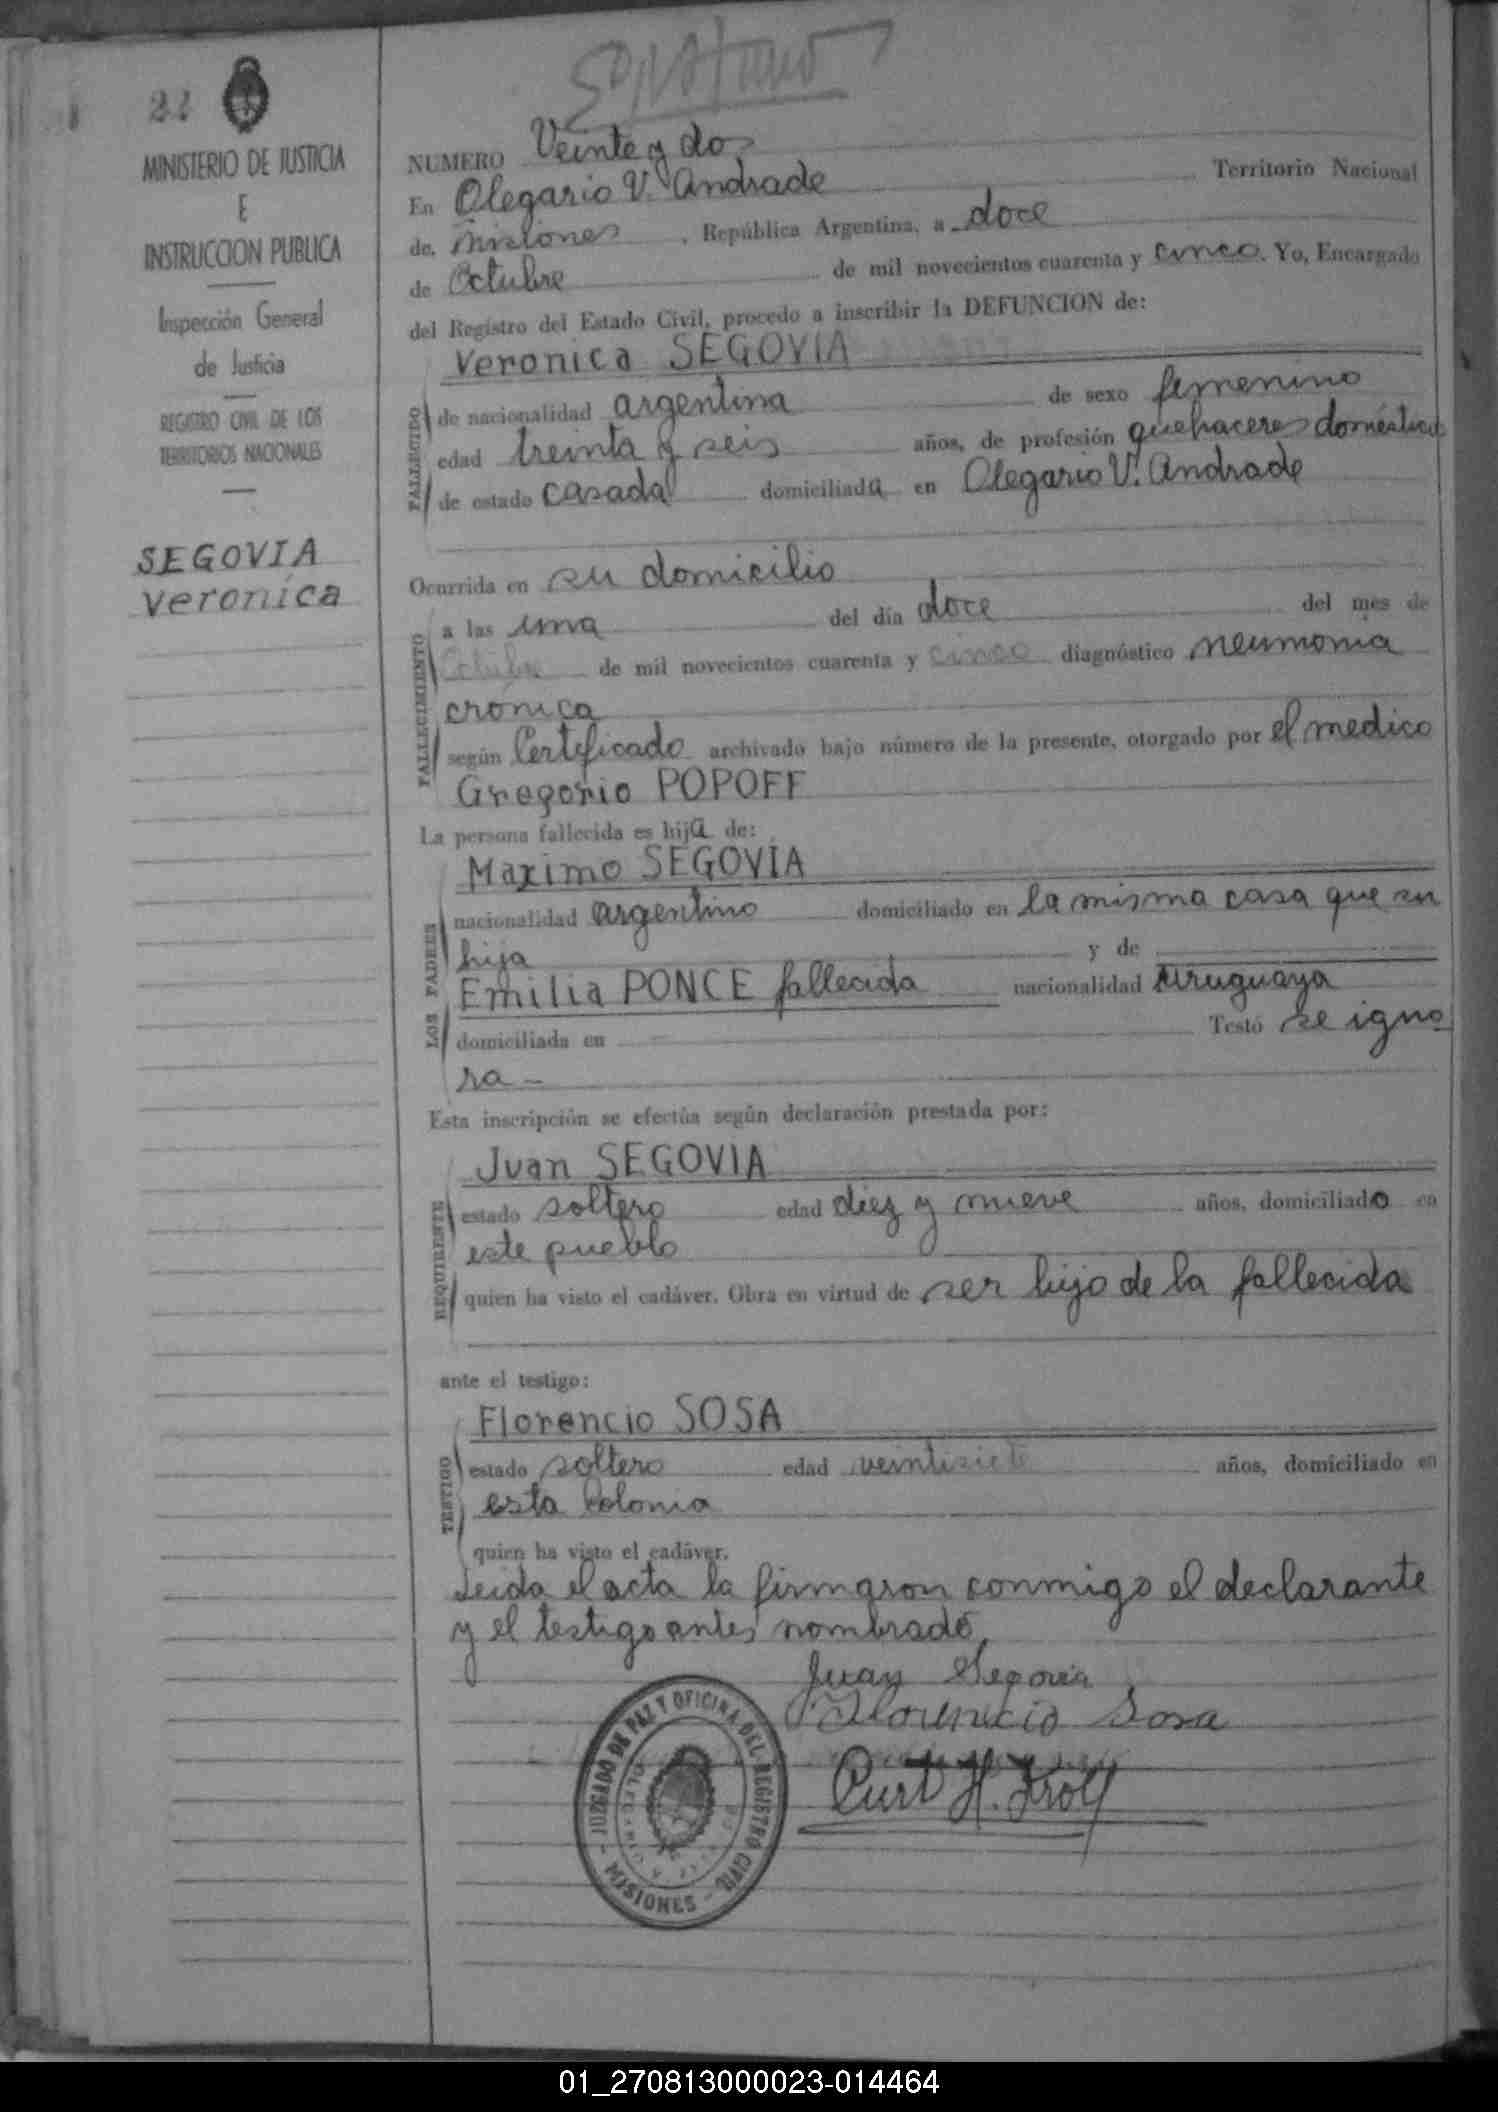 22
MINISTERIO DE JUSTICIA
E
INSTRUCCION PUBLICA
Inspección General
de Justicia
REGISTRO CIVIL DE LOS
TERRITORIOS NACIONALES
SEGOVIA
Veronica
NUMERO Veinte y dos
En Olegario V. Andrade Territorio Nacional
de Misiones, República Argentina, a doce
de Octubre de mil novecientos cuarenta y cinco. Yo, Encargado
del Registro del Estado Civil, procedo a inscribir la DEFUNCION de:
Veronica SEGOVIA
FALLECIDO
de nacionalidad argentina de sexo femenino
edad treinta y seis años, de profesión quehaceres domésticos
de estado casada domiciliada en Olegario V. Andrade
Ocurrida en su domicilio
FALLECIMIENTO
a las una del día doce del mes de
Octubre de mil novecientos cuarenta y cinco diagnóstico neumonia
crónica
según Certificado archivado bajo número de la presente, otorgado por el medico
Gregorio POPOFF
La persona fallecida es hija de:
Maximo SEGOVIA
LOS PADRES
nacionalidad argentino domiciliado en la misma casa que su
hija y de
Emilia PONCE fallecida nacionalidad Uruguaya
domiciliada en Testó se igno
ra -
Esta inscripción se efectúa según declaración prestada por:
Juan SEGOVIA
REQUIRENTE
estado soltero edad diez y nueve años, domiciliado en
este pueblo
quien ha visto el cadáver. Obra en virtud de ser hijo de la fallecida
ante el testigo:
Florencio SOSA
TESTIGO
estado soltero edad veintisiete años, domiciliado en
esta Colonia
quien ha visto el cadáver.
Leida el acta la firmaron conmigo el declarante
y el testigo antes nombrado.
Juan Segovia
Florencio Sosa
Curt H. Kroll
JUZGADO DE PAZ Y OFICINA DEL REGISTRO CIVIL
- MISIONES -
01_270813000023-014464